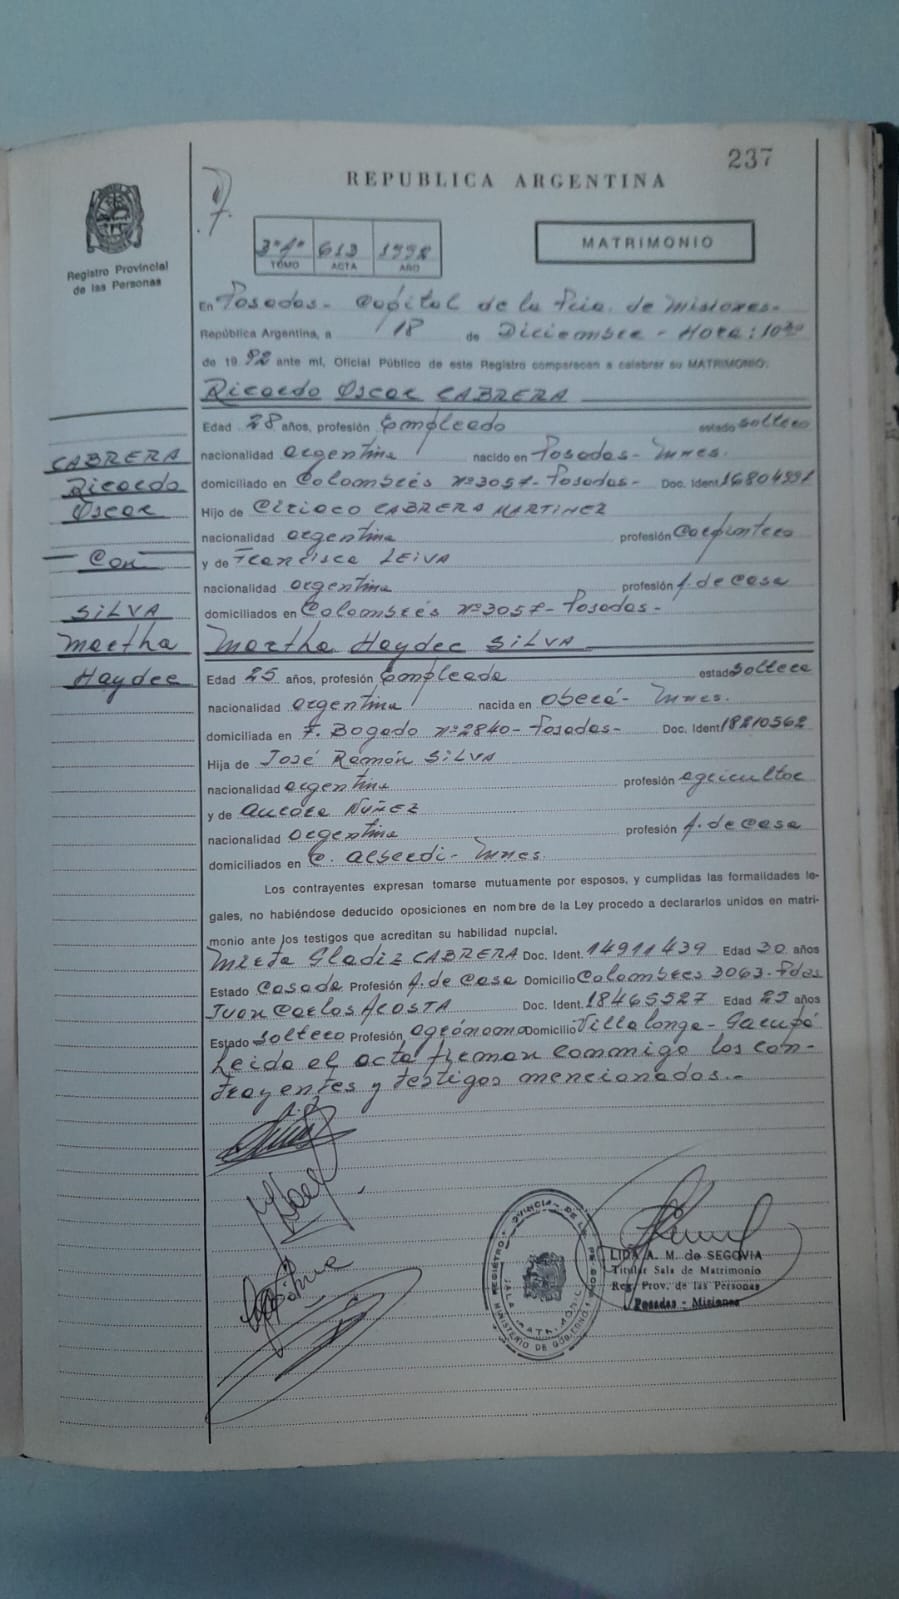 237
REPUBLICA ARGENTINA
MATRIMONIO
3º1º 613 1992
TOMO ACTA AÑO
Registro Provincial
de las Personas
En Posadas - Capital de la Pcia. de Misiones-
República Argentina, a 18 de Diciembre - Hora: 10³⁰
de 1992 ante mí, Oficial Público de este Registro comparecen a celebrar su MATRIMONIO:
Ricardo Oscar CABRERA
Edad 28 años, profesión Empleado estado soltero
nacionalidad argentina nacido en Posadas- Mnes.
domiciliado en Colombres nº3057- Posadas- Doc. Ident. 16804991
Hijo de Ciriaco CABRERA MARTINEZ
nacionalidad argentina profesión Carpintero
y de Francisca LEIVA
nacionalidad argentina profesión A. de casa
domiciliados en Colombres nº3057- Posadas-
Martha Haydee SILVA
Edad 25 años, profesión Empleada estado soltera
nacionalidad argentina nacida en Oberá- Mnes.
domiciliada en F. Bogado nº2840- Posadas- Doc. Ident. 18210562
Hija de José Ramón SILVA
nacionalidad argentina profesión agricultor
y de Aurora NUÑEZ
nacionalidad argentina profesión A. de casa
domiciliados en C. Alberdi- Mnes.
Los contrayentes expresan tomarse mutuamente por esposos, y cumplidas las formalidades le-
gales, no habiéndose deducido oposiciones en nombre de la Ley procedo a declararlos unidos en matri-
monio ante los testigos que acreditan su habilidad nupcial.
Mirta Gladiz CABRERA Doc. Ident. 14911439 Edad 30 años
Estado Casada Profesión A. de Casa Domicilio Colombres 3063- Pdas
Juan Carlos ACOSTA Doc. Ident. 18465527 Edad 25 años
Estado soltero Profesión agrónomo Domicilio Villalonga- Garupá
Leida el acta firman conmigo los con-
trayentes y testigos mencionados.-
CABRERA
Ricardo
Oscar
Con
SILVA
Martha
Haydee
LIDA A. M. de SEGOVIA
Titular Sala de Matrimonio
Reg. Prov. de las Personas
Posadas - Misiones